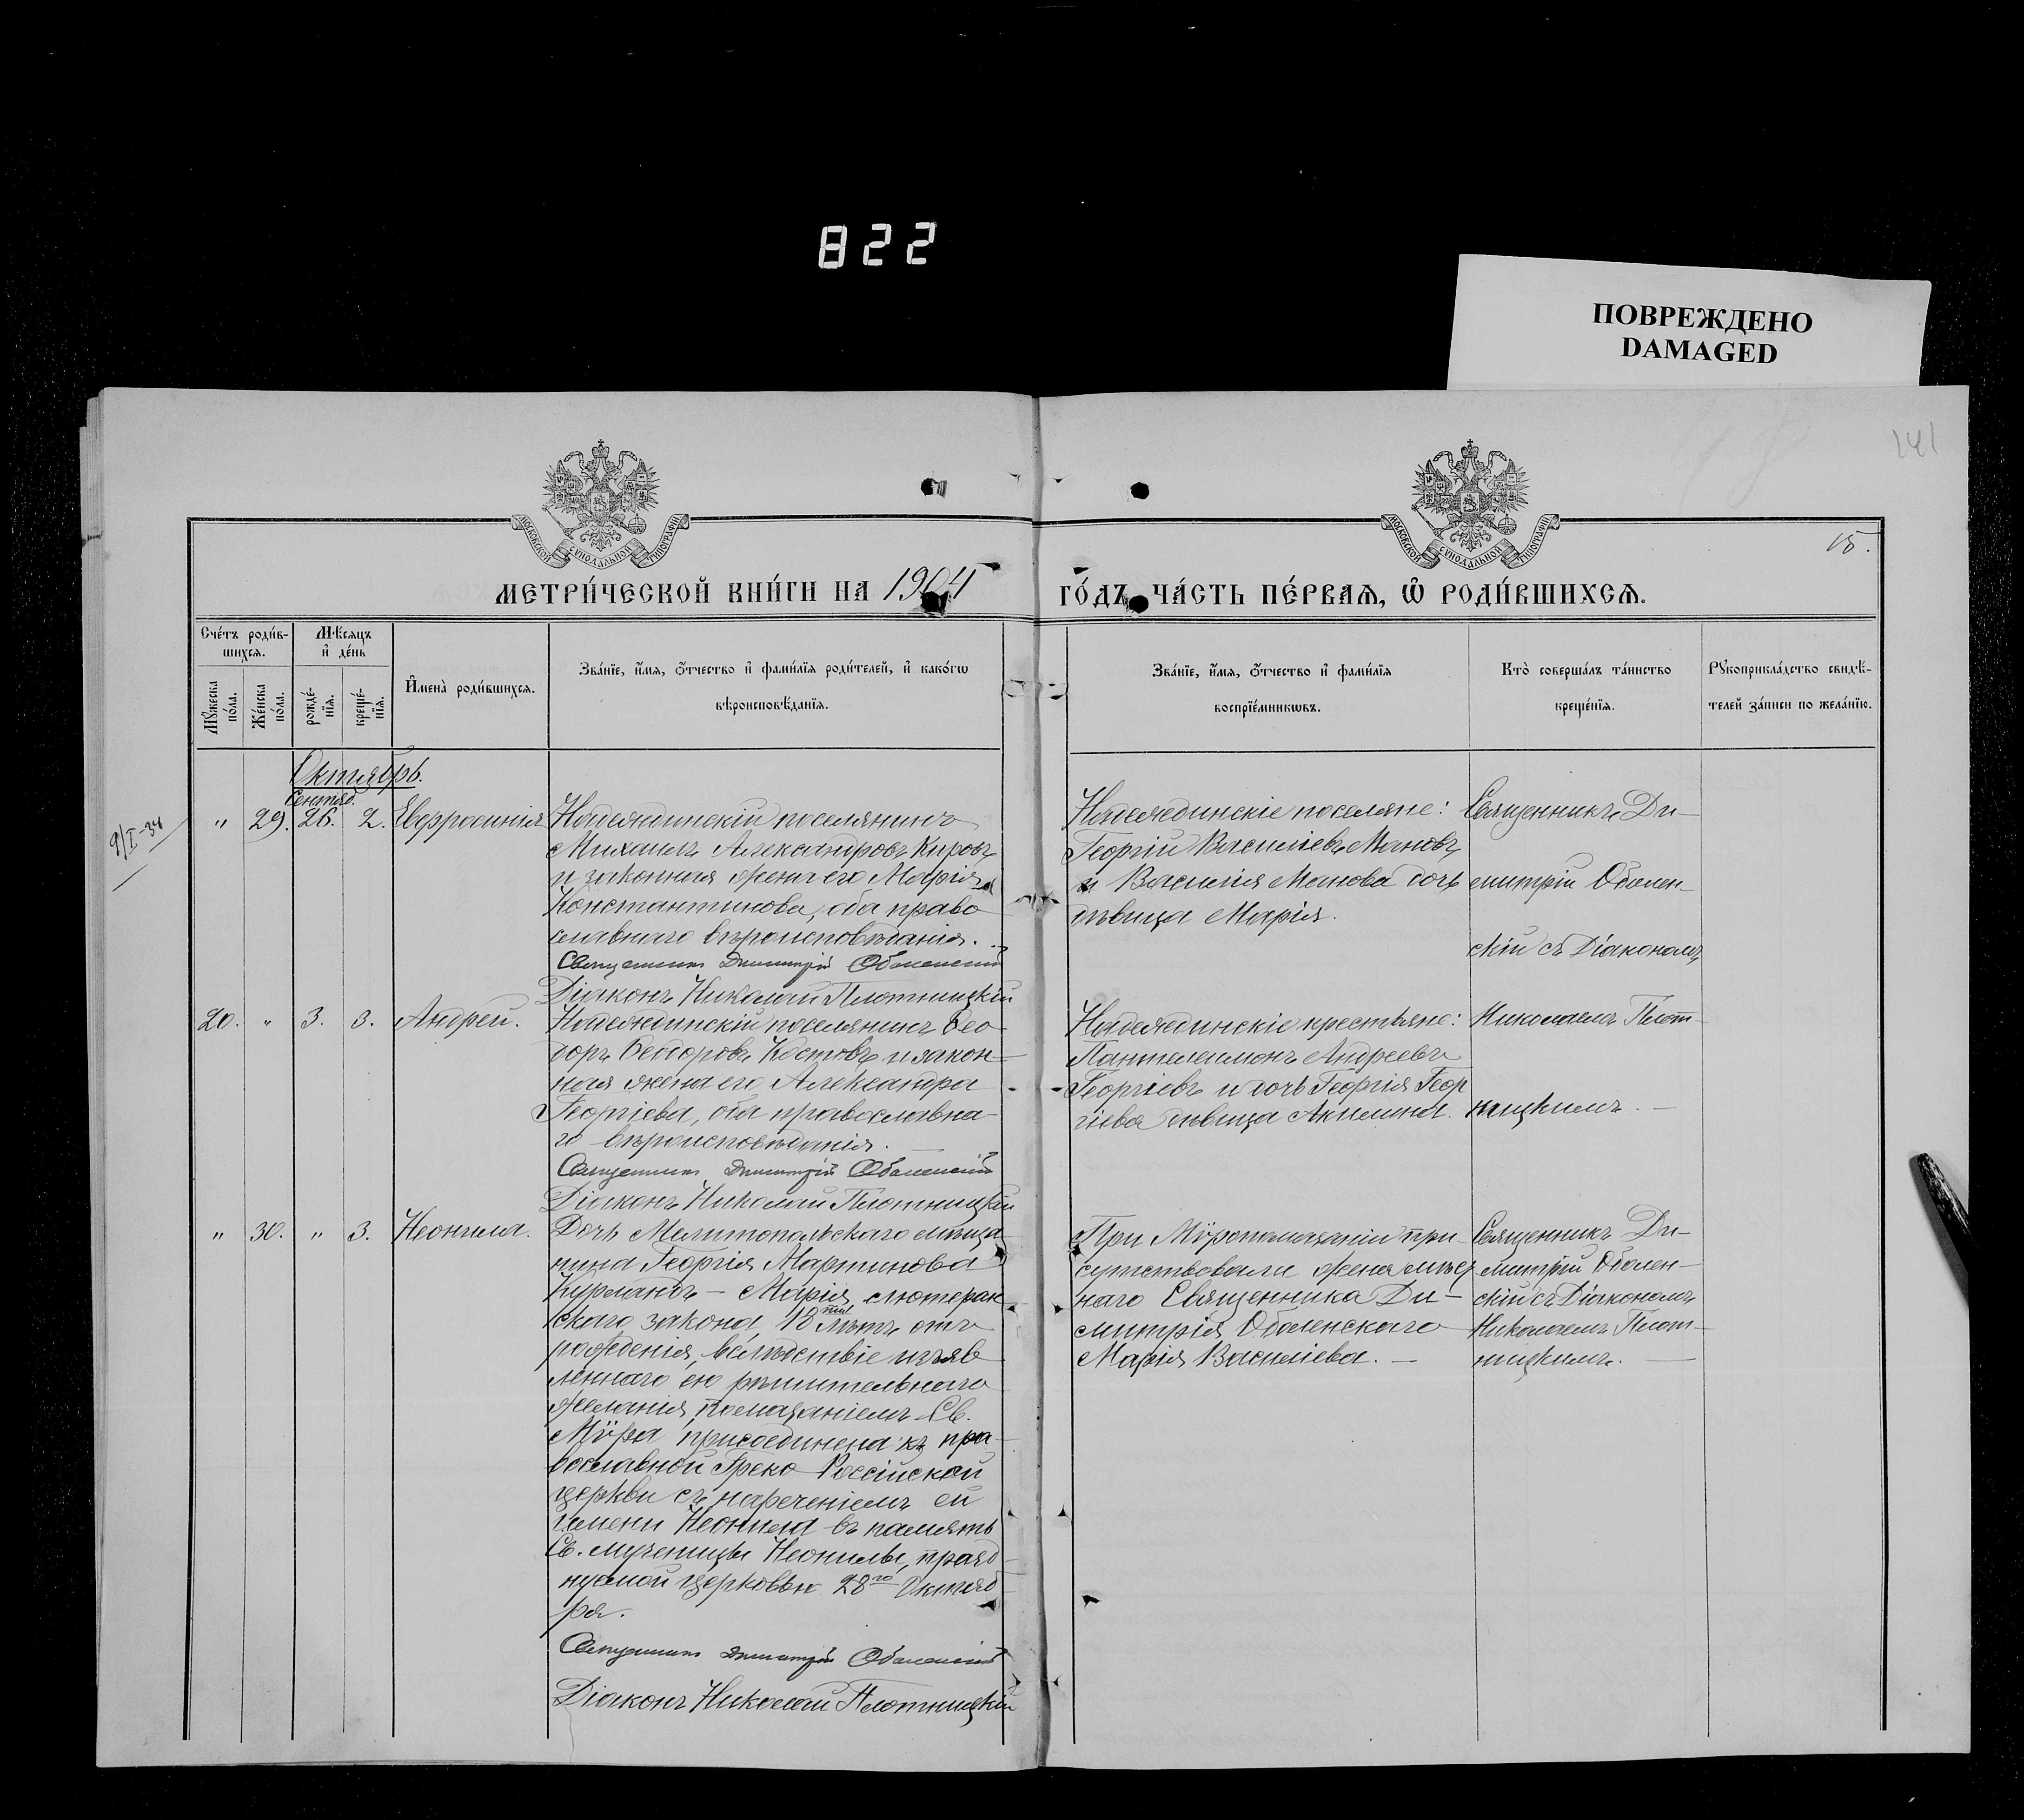 822
ПОВРЕЖДЕНО
DAMAGED
141
15.
МОСКОВСКОЙ СѴНОДАЛЬНОЙ ТИПОГРАФІИ
МОСКОВСКОЙ СѴНОДАЛЬНОЙ ТИПОГРАФІИ
МЕТРИ́ЧЕСКОЙ КНИ́ГИ НА 1904
ГО́ДЪ, ЧА́СТЬ ПЕ́РВАЯ, Ѡ҆ РОДИ́ВШИХСЯ.
Сче́тъ роди́в-
шихся.
Мѣ́сяцъ
и҆ де́нь
Мꙋ́жеска
по́ла.
Же́нска
по́ла.
рожде́-
нїя.
креще́-
нїя.
И҆мена̀ роди́вшихся.
Зва́нїе, и҆́мя, ѻ҆́тчество и҆ фами́лїя роди́телей, и҆ како́гѡ
вѣроисповѣ́данїя.
Зва́нїе, и҆́мя, ѻ҆́тчество и҆ фами́лїя
воспрїе́мникѡвъ.
Кто̀ соверша́лъ та́инство
креще́нїя.
Рꙋкоприкла́дство свидѣ́-
телей за́писи по жела́нїю.
Октябрь.
Сентяб.
9/I-34
" 29. 26. 2. Евфросинія
Надеждинскій поселянинъ
Михаилъ Александровъ Кировъ
и законная жена его Марія
Константинова, оба право
славнаго вѣроисповѣданія.
Священникъ Димитрій Оболенскій
Діаконъ Николай Плотницкій
Надеждинскіе поселяне:
Георгій Василіевъ Мановъ
и Василія Манова дочь
дѣвица Марія.
Священникъ Ди-
митрій Оболен-
скій съ Діакономъ
Николаемъ Плот-
ницкимъ. -
20. " 3. 3. Андрей.
Надеждинскій поселянинъ Ѳео-
доръ Ѳеодоровъ Костовъ и закон-
ная жена его Александра
Георгіева, оба православна-
го вѣроисповѣданія.
Священникъ Димитрій Оболенскій
Діаконъ Николай Плотницкій
Надеждинскіе крестьяне:
Пантелеимонъ Андреевъ
Георгіевъ и дочь Георгія Геор
гіева дѣвица Акилина.
" 30. " 3. Неонила.
Дочь Мелитопольскаго мѣща-
нина Георгія Мартинова
Курландъ - Марія, лютеран
скаго закона, 18 ти лѣтъ отъ
рожденія, вслѣдствіе изъяв
леннаго ею рѣшительнаго
желанія, помазаніемъ Св.
Мѵра присоединена къ пра-
вославной Греко-Россійской
церкви съ нареченіемъ ей
имени Неонила въ память
Св. мученицы Неонилы, празд-
нуемой церковью 28го Октяб
ря.
Священникъ Димитрій Оболенскій
Діаконъ Николай Плотницкій
При Мѵропомазаніи при-
сутствовали жена мѣст
наго Священника Ди-
митрія Оболенскаго
Марія Василіева. -
Священникъ Ди-
митрій Оболен-
скій съ Діакономъ
Николаемъ Плот-
ницкимъ. -